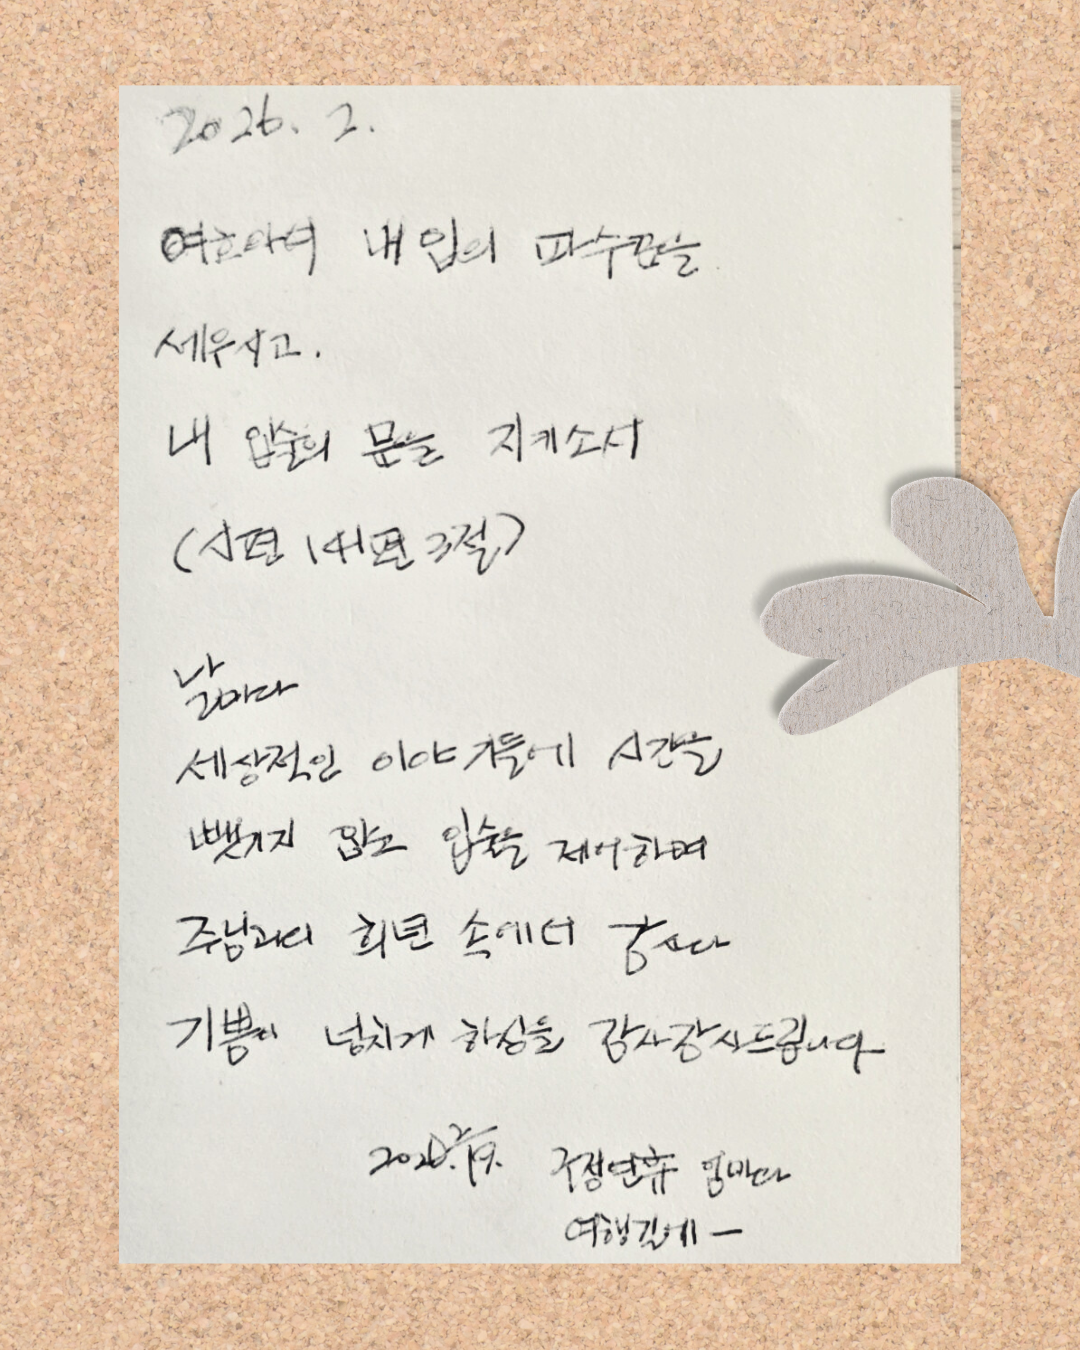 2026. 2.
여호와여 내 입의 파수꾼을
세우시고.
내 입술의 문을 지키소서
(시편 141편 3절)
날마다
세상적인 이야기들에 시간을
뺏기지 않고 입술을 제어하며
주님과의 희년 속에서
기쁨이 넘치게 하심을 감사감사드립니다
2026. 2/19. 구정연휴
여행길에 —